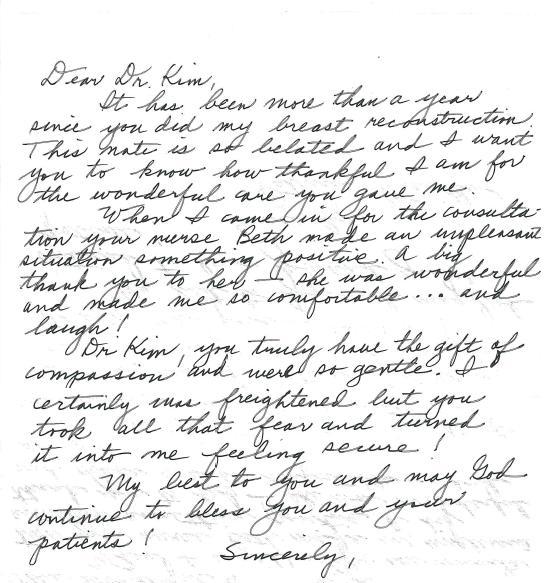 Dear Dr. Kim,
It has been more than a year
since you did my breast reconstruction.
This note is so belated and I want
you to know how thankful I am for
the wonderful care you gave me.
When I came in for the consulta-
tion your nurse Beth made an unpleasant
situation something positive. A big
thank you to her - she was wonderful
and made me so comfortable... and
laugh!
Dr. Kim, you truly have the gift of
compassion and were so gentle. I
certainly was freightened but you
took all that fear and turned
it into me feeling secure!
My best to you and may God
continue to bless you and your
patients!
Sincerely,